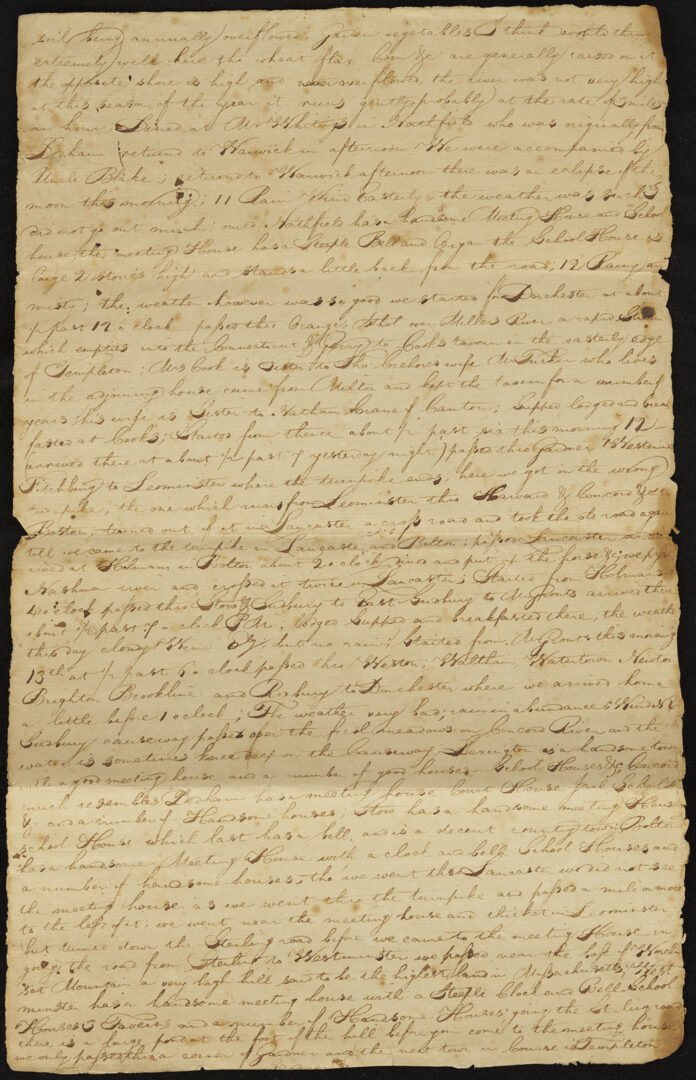 soil being annually overflowed Garden vegetables I think would thrive
extremely well here rhe wheat flax Corn &c are generally raised on it
the opposite shore is high and never overflowed; the river was not very high
at this season of the year it runs gently probably at the rate miles
an hour, Dined at Mr Whitings in Northfield who was originally from
Dedham return to Warwick in afternoon We were accompanied by
Uncle Blake; returned to Warwick afternoon there was an eclipse of the
moon this morning; 11 Fair Wind Easterly & the weather was such I
did not go out much; Northfield has a handsome Meeting House and School
house the meeting House has a Steeple Bell and Organ the School House is
large 2 stories high and stands a little back from the road; 12 Rainy or
misty; the weather however was so good we started for Dorchester at about
1/2 past 12 o clock passed thro Orange, Athol over Millers River a rapid Stream
which empties into the Connecticut to Cooks tavern in the easterly edge
of Templeton; Mrs Cook is Sister to Tho Crehores wife Mr who lives
in the adjoining house came from Milton and kept the tavern for a number of
years his wife is Sister to Nathan Crane of Canton; Supped lodged and break
fasted at Cooks; Started from thence about 1/2 past six this morning 12
(arrived there at about 1/2 past 7 yesterday night) passed thro Gardner Westminster
Fitchburg to Leominster where the turnpike ends; here we got on the wrong
turnpike, the one which runs from Leominster thro Harvard & Concord &c to
Boston, turned out of it in Lancaster a cross road and took the old road again
till we came to the turnpike in Lancaster and Bolton; passed Lancaster and
arrived at Holmans in Bolton about 2 o clock dined and put up the horse &c; we passed
Nashua river and crossed it twice in Lancaster; Started from Holmans
4 o clock passed thro Stow & Sudbury to East Sudbury to Mr arrived there
about 1/2 past 7 o clock P.M. lodged supped and breakfasted there; the weather
this day cloudy Wind but no rain; Started from Mr this morning
13th at 1/2 past 6 o clock passed thro Weston, Waltham, Watertown Newton
Brighton Brookline and Roxbury to Dorchester where we arrived home
a little before 1 o clock; The weather very bad; rain in abundance Wind N E
Sudbury causeway passes over the fresh meadows on Concord River and the
water is sometimes knee deep on the causeway, Lexington is a handsome town
with a good meeting house and a number of good houses School Houses &c Concord
much resembles Dedham has a meeting house Court House Jail School H
& and a number of Handsome houses; Stow has a handsome meeting House
school House which last has a bell and is a decent country town; Bolton
has a handsome Meeting House with a clock and bell School Houses and
a number of handsome houses; tho we went thro Lancaster we did not see
the meeting house as we went thro the turnpike and passed a mile or more
to the left of it; we went near the meeting house and thicket in Leominster
but turned down the Sterling road before we came to the meeting House in
going the road from Sterling to Westminster we passed near the base of Wachu
sett Mountain a very high hill said to be the highest land in Massachusetts; West
minster has a handsome meeting house with a Steeple Clock and Bell School
Houses & Taverns and a number of Handsome Houses; going the Sterling road
there is a large pond at the foot of the hill before you come to the meeting house
we only passed thro a corner of Gardner and the next town in Course is Templeton